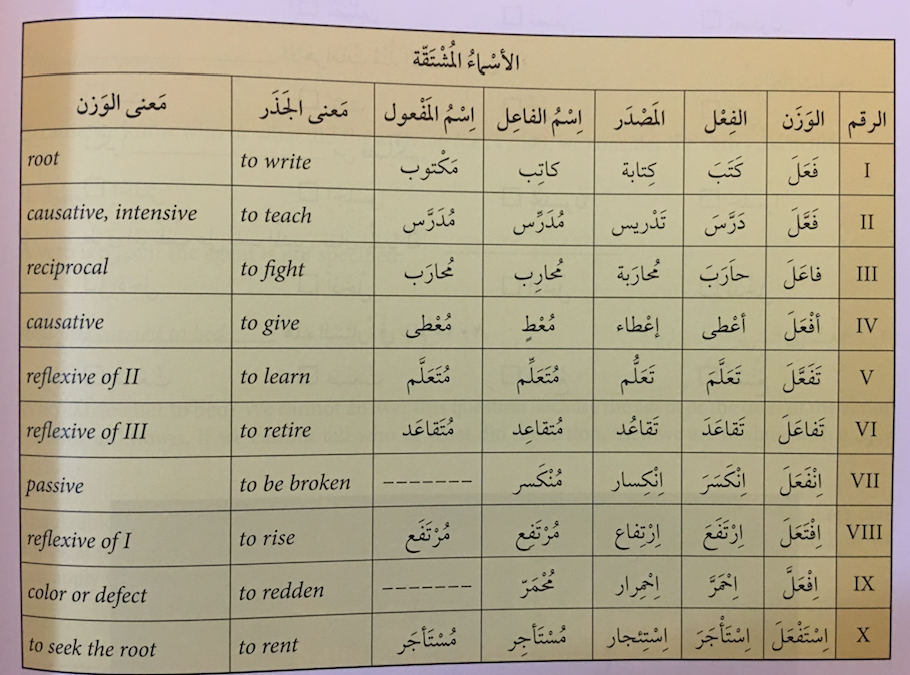 الأسْماءُ المُشْتَقّة
الرقم الوَزَن الفِعْل المَصْدَر اِسْمُ الفاعِل اِسْمُ المَفْعول مَعنى الجَذَر مَعنى الوَزن
I فَعَلَ كَتَبَ كِتابة كاتِب مَكْتوب to write root
II فَعَّلَ دَرَّسَ تَدْريس مُدَرِّس مُدَرَّس to teach causative, intensive
III فاعَلَ حارَبَ مُحارَبة مُحارِب مُحارَب to fight reciprocal
IV أفْعَلَ أعْطى إعْطاء مُعْطٍ مُعْطى to give causative
V تَفَعَّلَ تَعَلَّمَ تَعَلُّم مُتَعَلِّم مُتَعَلَّم to learn reflexive of II
VI تَفاعَلَ تَقاعَدَ تَقاعُد مُتقاعِد مُتَقاعَد to retire reflexive of III
VII اِنْفَعَلَ اِنْكَسَرَ اِنْكِسار مُنْكَسر ------- to be broken passive
VIII اِفْتَعَلَ اِرْتَفَعَ اِرْتِفاع مُرْتَفِع مُرْتَفَع to rise reflexive of I
IX اِفْعَلَّ اِحْمَرَّ اِحْمِرار مُحْمَرّ ------- to redden color or defect
X اِسْتَفْعَلَ اِسْتَأْجَرَ اِسْتِئجار مُسْتَأجِر مُسْتَأجَر to rent to seek the root